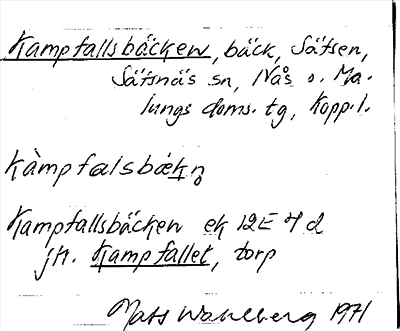 Kampfallsbäcken, bäck, Sätsen,
Sätsnäs sn, Nås o. Ma-
lungs doms. tg, Kopp. l.
kàmpfalsbækn̥
Kampfallsbäcken ek 12E 7d
jfr. Kampfallet, torp
Mats Wahlberg 1971